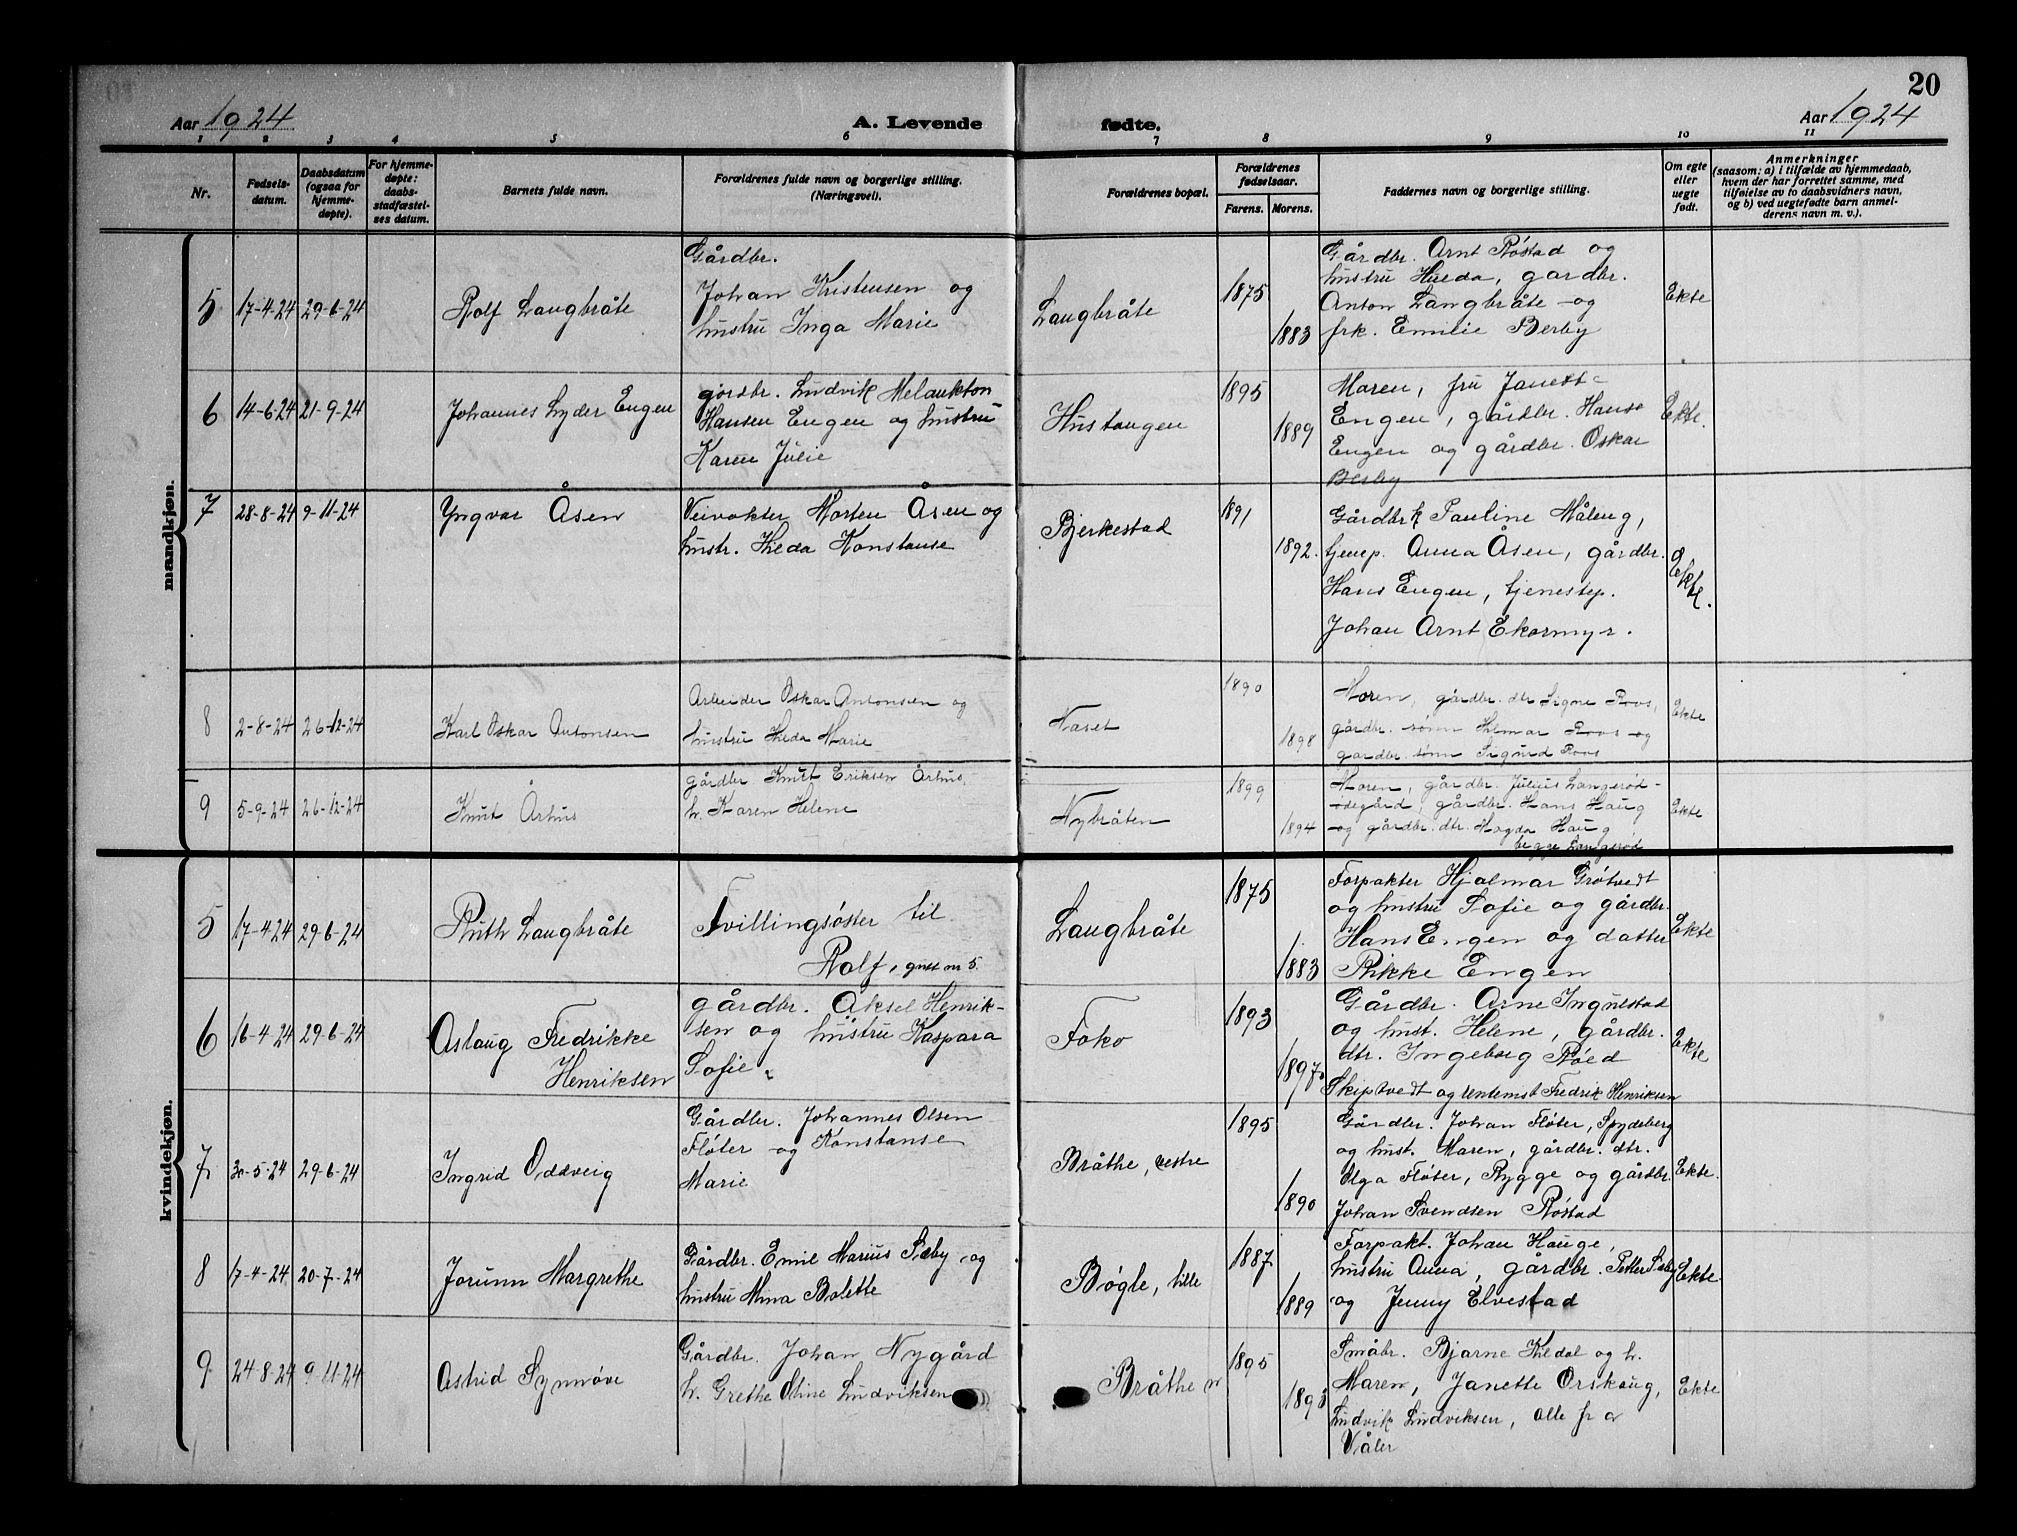 20
Aar 1924 A. Levende fødte. Aar 1924
1 2 3 4 5 6 7 8 9 10 11
Nr.
Fødsels-
datum.
Daabsdatum
(ogsaa for
hjemme-
døpte).
For hjemme-
døpte:
daabs-
stadfæstel-
ses datum.
Barnets fulde navn.
Forældrenes fulde navn og borgerlige stilling.
(Næringsvei).
Forældrenes bopæl.
Forældrenes
fødselsaar.
Farens. Morens.
Faddernes navn og borgerlige stilling.
Om egte
eller
uegte
født.
Anmerkninger
(saasom: a) i tilfælde av hjemmedaab,
hvem der har forrettet samme, med
tilføielse av to daabsvidners navn,
og b) ved uegtefødte barn anmel-
derens navn m. v.).
mandkjøn.
5 17-4-24 29-6-24 Rolf Langbråte
Gårdbr.
Johan Kristensen og
hustru Inga Marie
Langbråte 1875 1883
Gårdbr. Arnt Röstad og
hustru Hilda, gardbr.
Anton Langbråte og
frk. Emilie Berby
Ekte
6 14-6-24 21-9-24 Johannes Lyder Engen
gårdbr. Ludvik Melankton
Hansen Engen og hustru
Karen Julie
Hustangen 1895 1889
Maren, fru Janette
Engen, gårdbr. Hans
Engen og gårdbr. Oskar
Berby
Ekte.
7 28-8-24 9-11-24 Yngvar Åsen
Veivokter Morten Åsen og
hustr. Hilda Konstanse
Bjerkestad 1891 1892.
Gårdbrk Pauline Måleng,
tjenep. Anna Åsen, gårdbr.
Hans Engen, tjenestep.
Johan Arnt Ekormyr.
Ekte.
8 2-8-24 26-12-24 Karl Oskar Antonsen
Arbeider Oskar Antonsen og
hustru Hilda Marie
Naset 1890 1898
Moren, gårdbr. dtr Signe Roos,
gårdbr. sønn Hilmar Roos og
gardbr. sønn Sigurd Roos
Ekte
9 5-9-24 26-12-24 Knut Århus
gårdbr Knut Eriksen Århus,
h. Karen Helene
Nybråten 1899 1894
Moren, gårdbr. Julius Langerød-
ødegård, gårdbr. Hans Haug
og gårdbr. dtr. Magda Haug
begge Langerød
Ekte
kvindekjøn.
5 17-4-24 29-6-24 Ruth Langbråte
Tvillingsøster til
Rolf, gutt nr 5.
Langbråte 1875 1883
Forpakter Hjalmar Grötvedt
og hustru Sofie og gårdbr.
Hans Engen og datter
Rikke Engen
Ekte
6 16-4-24 29-6-24 Aslaug Fredrikke
Henriksen
gårdbr. Aksel Henrik-
sen og hustru Kaspara
Sofie
Foko 1893 1897
Gårdbr. Arne Ingulstad
og hust. Helene, gårdbr.
dtr. Ingeborg Röed
Skiptvedt og rentemst Fredrik Henriksen
Ekte
7 30-5-24 29-6-24 Ingrid Oddveig
Gårdbr. Johannes Olsen
Flöter og Konstanse
Marie
Bråthe, vestre 1895 1890
Gårdbr. Johan Flöter, Spydeberg
og hust. Maren, gårdbr. dtr.
Olga Flöter, Rygge og gårdbr.
Johan Svendsen Röstad
Ekte.
8 17-4-24 20-7-24 Jorunn Margrethe
Gårdbr. Emil Marius Sæby og
hustru Mina Bolette
Bøgle, lille 1887 1889
Forpakt. Johan Hauge,
hustru Anna, gårdbr. Petter Sæby
og Jenny Elvestad
Ekte.
9 24-8-24 9-11-24 Astrid Synnøve
Gårdbr. Johan Nygård
h. Grethe Stine Ludviksen
Bråthe n 1895 1893
Småbr. Bjarne Kildal og h.
Maren, Janette Orskaug,
Ludvik Ludviksen, alle fr a
Våler
Ekte